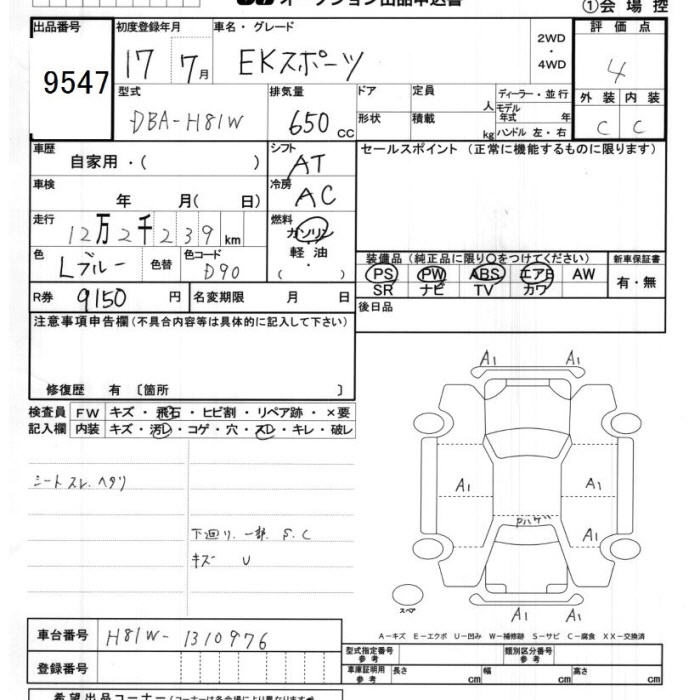 オークション出品申込書
①会場控
出品番号 9547
初度登録年月 17 7月
車名・グレード EKスポーツ
2WD・4WD
評価点 4
外装 内装
C C
型式 DBA-H81W
排気量 650 cc
ドア
形状
定員 人
積載 kg
ディーラー・並行
モデル年式 年
ハンドル 左・右
車歴 自家用・( )
シフト AT
セールスポイント (正常に機能するものに限ります)
車検 年 月( 日)
冷房 AC
走行 12万2千239km
燃料 ガソリン
軽油
( ・ )
色 Lブルー 色替
色コード D90
装備品(純正品に限り○をつけてください)
新車保証書
PS PW ABS エアB AW
SR ナビ TV カワ
有・無
R券 9150 円
名変期限 月 日
後日品
注意事項申告欄(不具合内容等は具体的に記入して下さい)
修復歴 有 〔箇所 〕
検査員記入欄
FW キズ・飛石・ヒビ割・リペア跡・×要
内装 キズ・汚レ・コゲ・穴・スレ・キレ・破レ
シートスレ、ヘタリ
下廻り、一部、S、C
キズ U
A1 A1
A1 A1
Pハゲ
A1
A1 A1
スペア
A-キズ E-エクボ U-凹み W-補修跡 S-サビ C-腐食 XX-交換済
車台番号 H81W-1310976
登録番号
型式指定番号 参考
類別区分番号 参考
車庫証明用 参考 長さ cm 幅 cm 高さ cm
希望出品コーナー(コーナーは各会場により異なります)